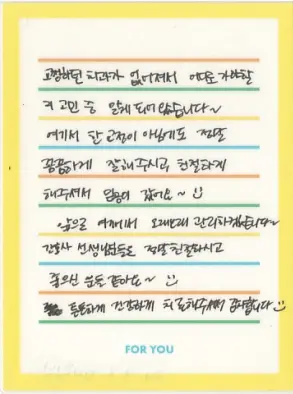 고정하던 치과가 없어져서 어디로 가야할
지 고민 중 알게 되어 왔습니다~
여기서 한 교정이 아님에도 정말
꼼꼼하게 잘해주시고 친절하게
해주셔서 믿음이 갔어요~
앞으로 여기에서 오래오래 관리하겠습니다~
간호사 선생님들도 정말 친절하시고
좋으신 분들 같아요~
튼튼하게 건강하게 치료해주셔서 감사합니다
FOR YOU